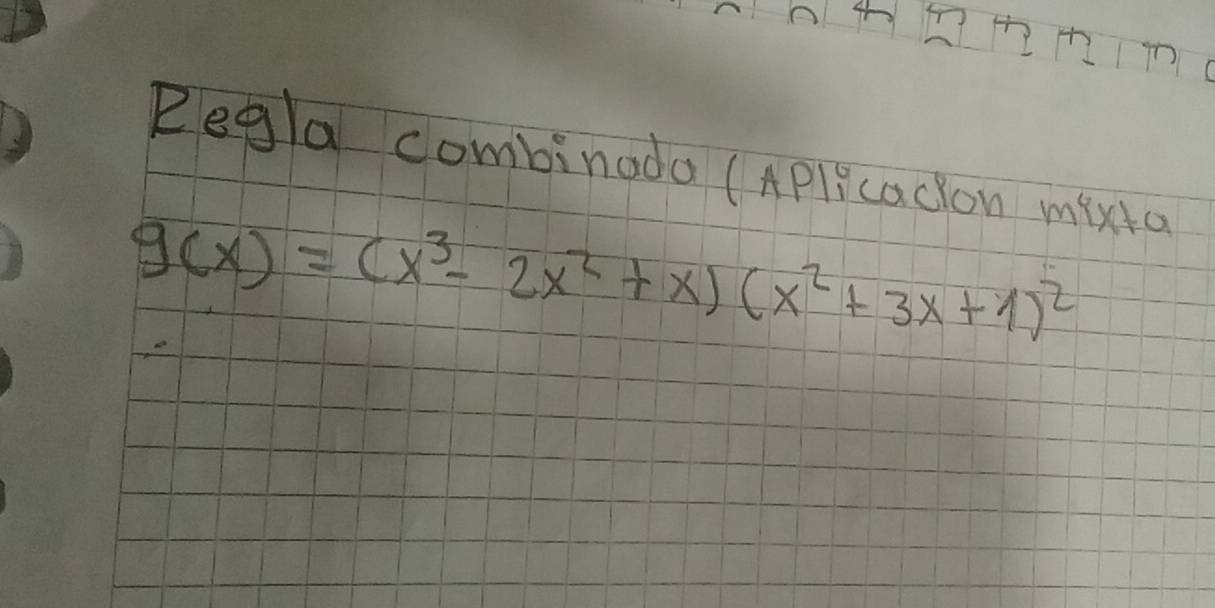 Regla combinada (APlicacion mixta
g(x) = (x³- 2x² + x) (x² + 3x + 1)²